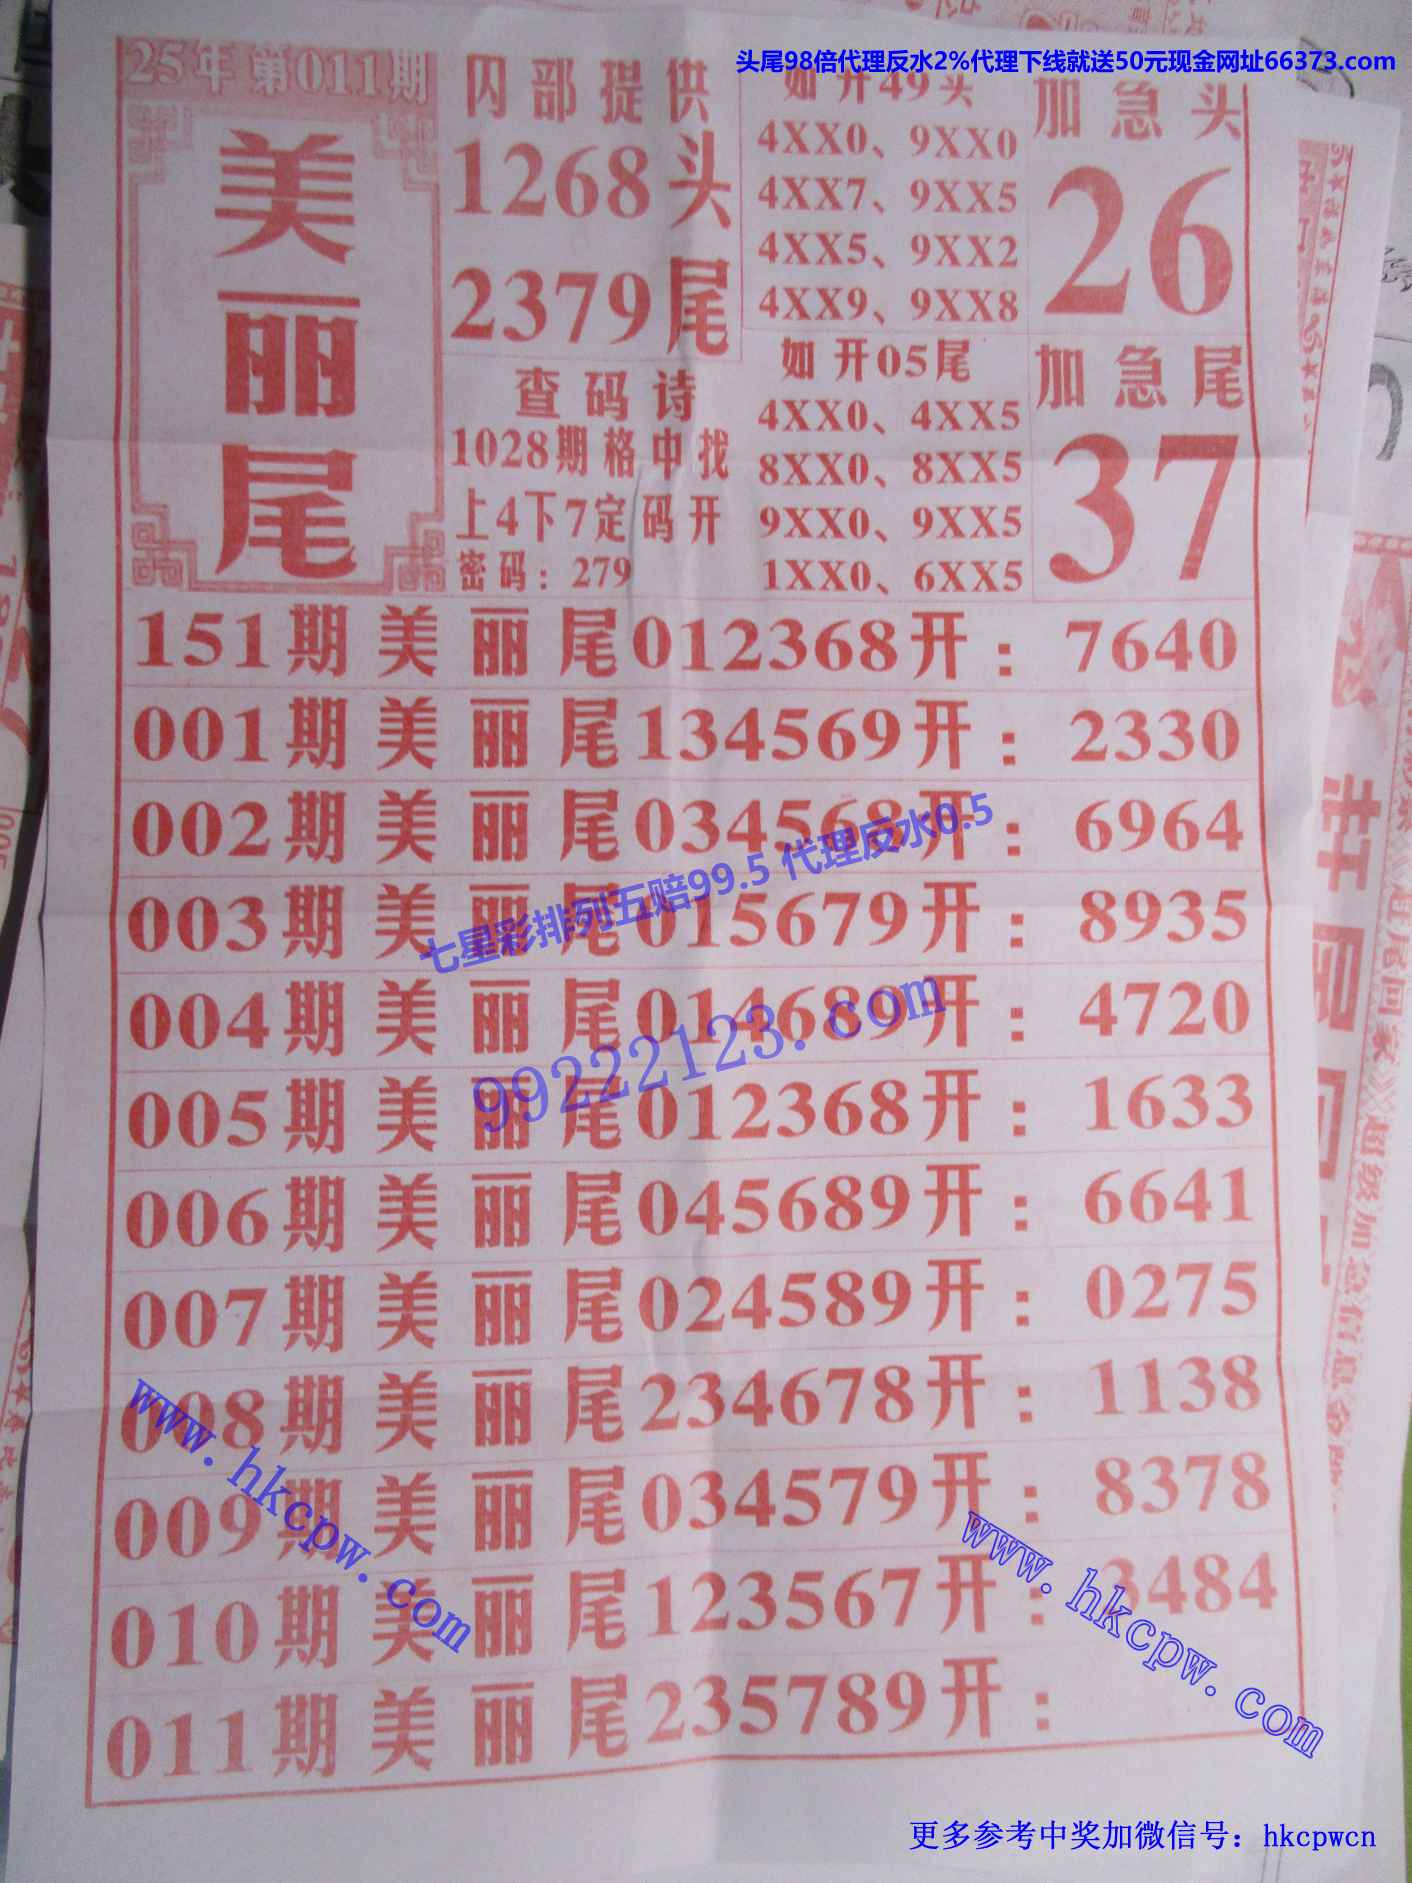 头尾98倍代理反水2%代理下线就送50元现金网址66373.com
25年 第011期
美丽尾
内部提供
1268头
2379尾
查码诗
1028期格中找
上4下7定码开
密码：279
如开49头
4XX0、9XX0
4XX7、9XX5
4XX5、9XX2
4XX9、9XX8
如开05尾
4XX0、4XX5
8XX0、8XX5
9XX0、9XX5
1XX0、6XX5
加急头
26
加急尾
37
151期美丽尾012368开：7640
001期美丽尾134569开：2330
002期美丽尾034568开：6964
003期美丽尾015679开：8935
004期美丽尾014689开：4720
005期美丽尾012368开：1633
006期美丽尾045689开：6641
007期美丽尾024589开：0275
008期美丽尾234678开：1138
009期美丽尾034579开：8378
010期美丽尾123567开：3484
011期美丽尾235789开：
七星彩排列五赔99.5 代理反水0.5
99222123.com
www.hkcpw.com
www.hkcpw.com
更多参考中奖加微信号：hkcpwcn